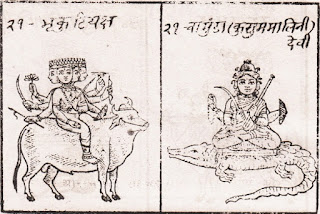 २१ - भृकुटि यक्ष
२१ - चामुंडा (कुसुममालिनी)
देवी